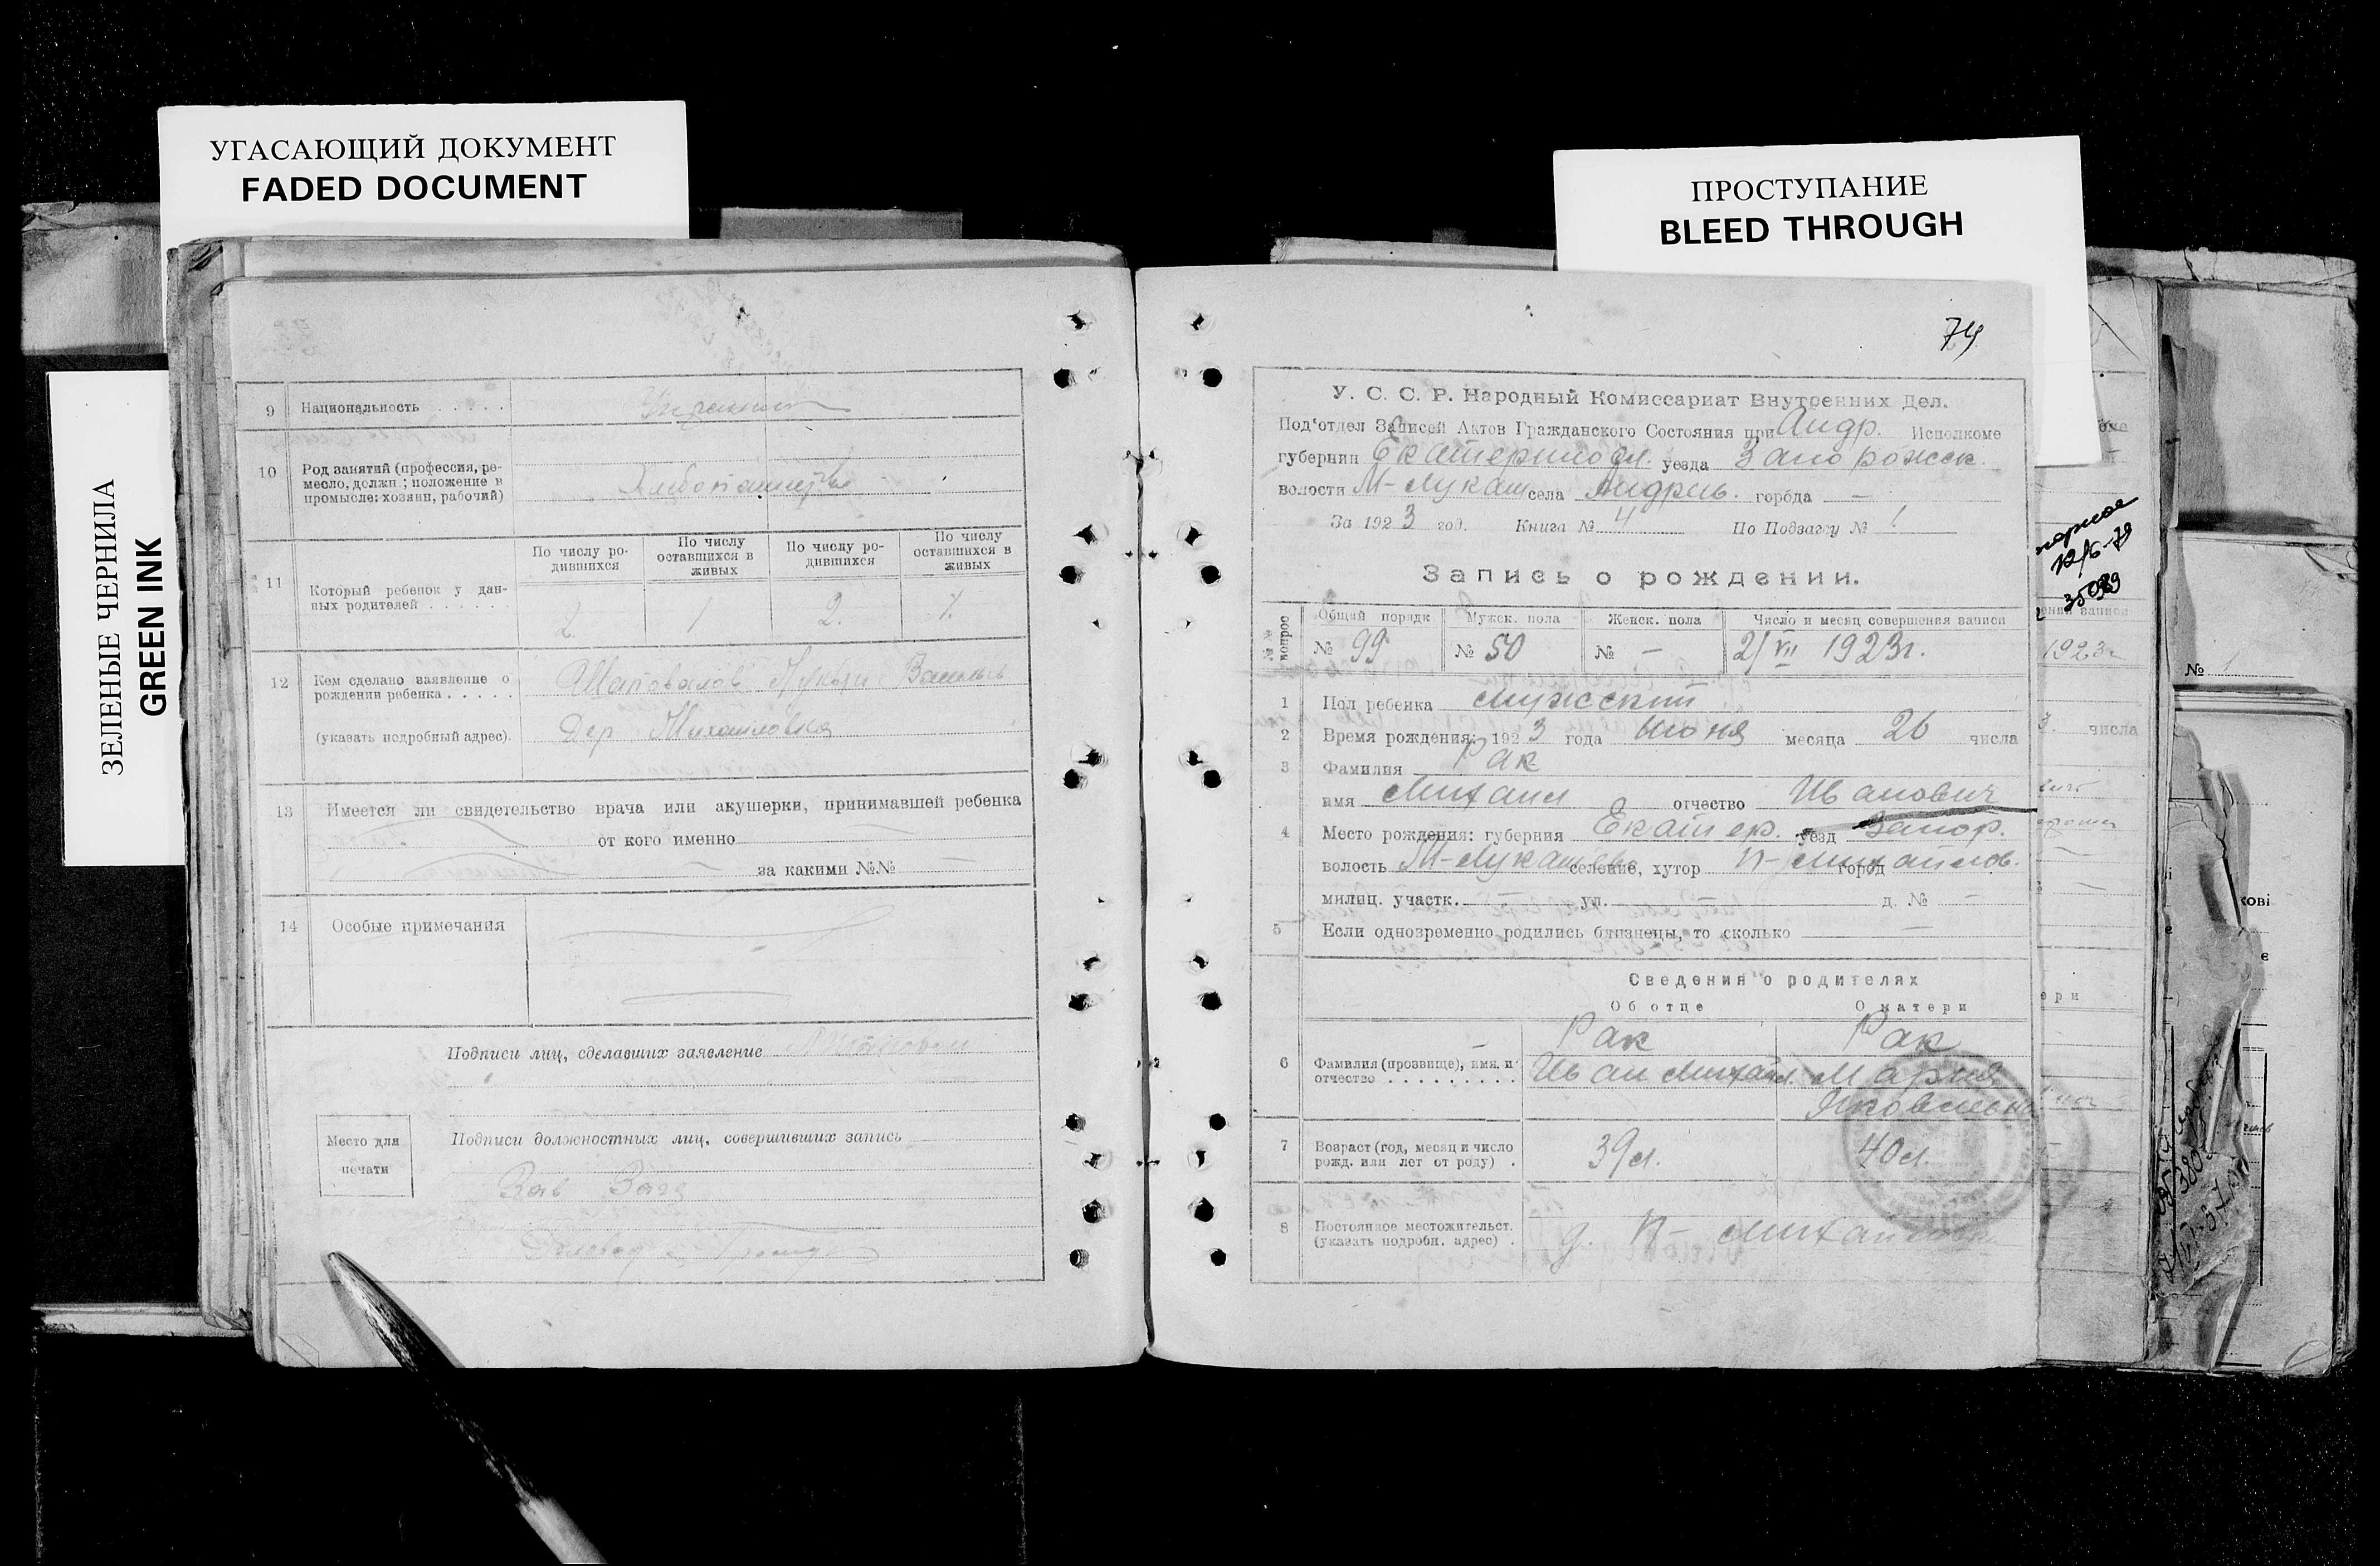 УГАСАЮЩИЙ ДОКУМЕНТ
FADED DOCUMENT
ПРОСТУПАНИЕ
BLEED THROUGH
ЗЕЛЕНЫЕ ЧЕРНИЛА
GREEN INK
9 Национальность
10 Род занятий (профессия, ре-
месло, должн.; положение в
промысле: хозяин, рабочий)
По числу ро-
дившихся
По числу
оставшихся в
живых
По числу ро-
дившихся
По числу
оставшихся в
живых
11 Который ребенок у дан-
ных родителей
2 1 2. 1.
12 Кем сделано заявление о
рождении ребенка
Шаповалов
(указать подробный адрес). Дер. Михайловка
13 Имеется ли свидетельство врача или акушерки, принимавшей ребенка
от кого именно
за какими №№ —
14 Особые примечания
Подписи лиц, сделавших заявление
Место для
печати
Подписи должностных лиц, совершивших запись
Зав Загс
74
У. С. С. Р. Народный Комиссариат Внутренних Дел.
Под'отдел Записей Актов Гражданского Состояния при Андр. Исполкоме
губернии Екатериносл. уезда Запорожск.
волости М-Лукаш села Андреев. города —
За 1923 год. Книга № 4 По Подзагсу № 1
Запись о рождении.
№№ вопрос
Общий порядк Мужск. пола Женск. пола Число и месяц совершения записи
№ 99 № 50 № — 2/VII 1923г.
1 Пол ребенка мужский
2 Время рождения: 1923 года Июня месяца 26 числа
3 Фамилия Рак
имя Михаил отчество Иванович
4 Место рождения: губерния Екатер. уезд Запор.
волость М-Лукашево селение, хутор П-Михайлов. город
милиц. участк. — ул. — д. № —
5 Если одновременно родились близнецы, то сколько —
Сведения о родителях
Об отце О матери
6 Фамилия (прозвище), имя и
отчество
Рак
Иван Михайл.
Рак
Мария
Яковлевна
7 Возраст (год, месяц и число
рожд. или лет от роду)
39 л. 40 л.
8 Постоянное местожительст.
(указать подробн. адрес)
д. П-Михайловка
12/6-79
1923г.
числа
№ 1